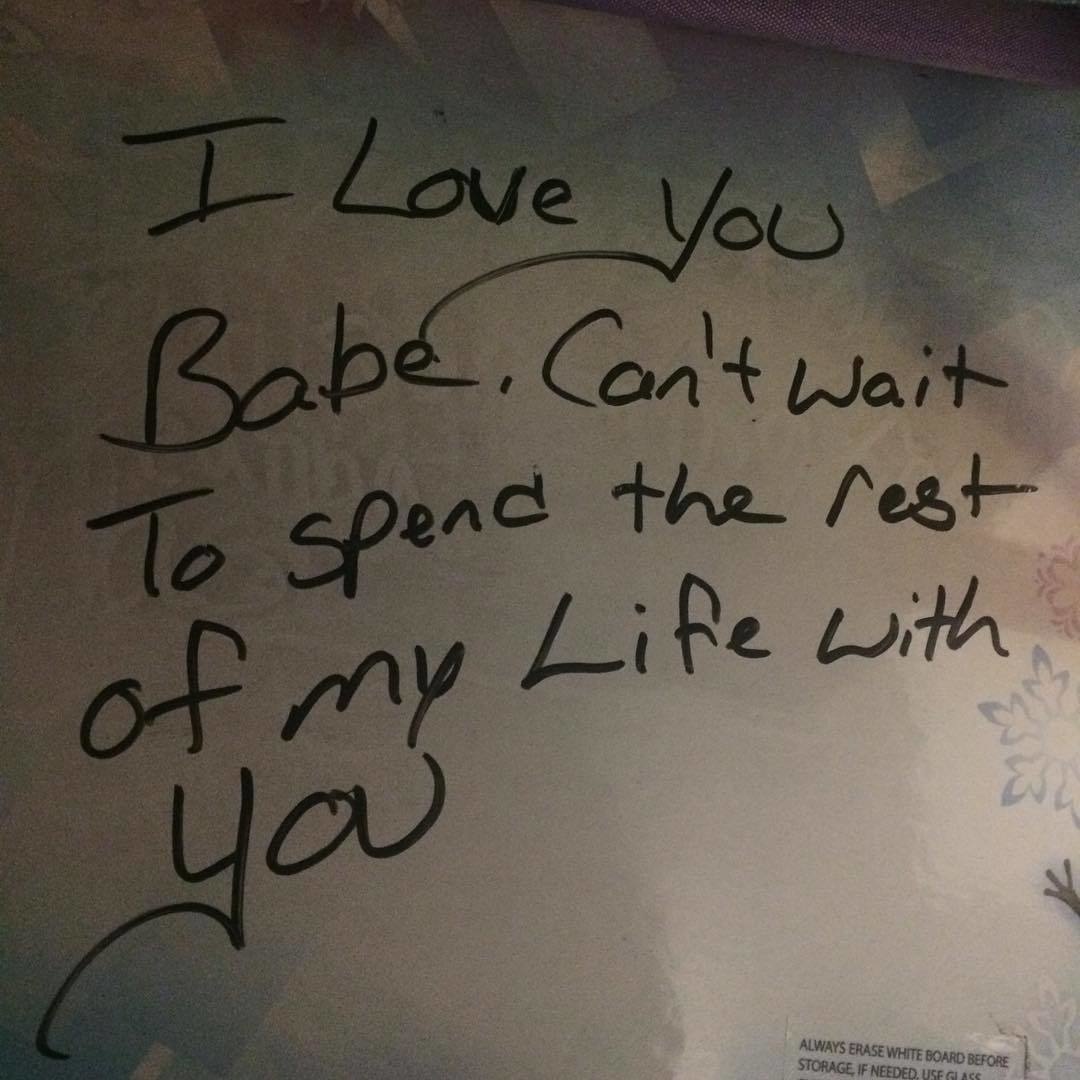 I Love You
Babe. Can't wait
To spend the rest
of my Life with
you
ALWAYS ERASE WHITE BOARD BEFORE
STORAGE, IF NEEDED, USE GLASS